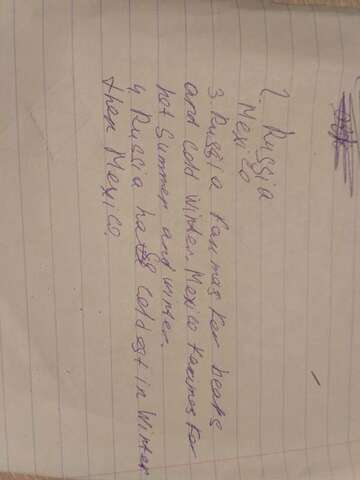 2. Russia
Mexico
3. Russia Famas for beats
and cold Winter. Mexico Famos for
hot Summer and winter.
4. Russia has coldest in Winter
then Mexico.